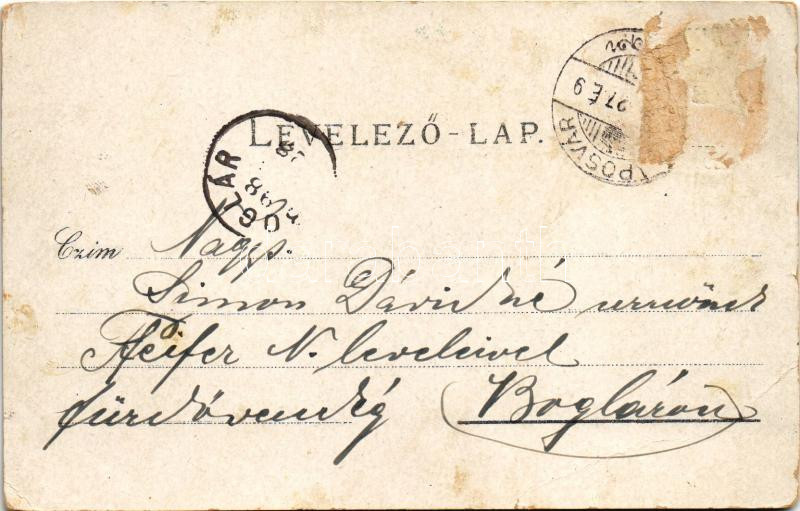 LEVELEZŐ-LAP.
POSVÁR
27 É 9
OGLÁR
98
Czim Nagys.
Simon Dávidné urnőnek
Pfeifer N. leveleivel
fürdővendég Bogláron